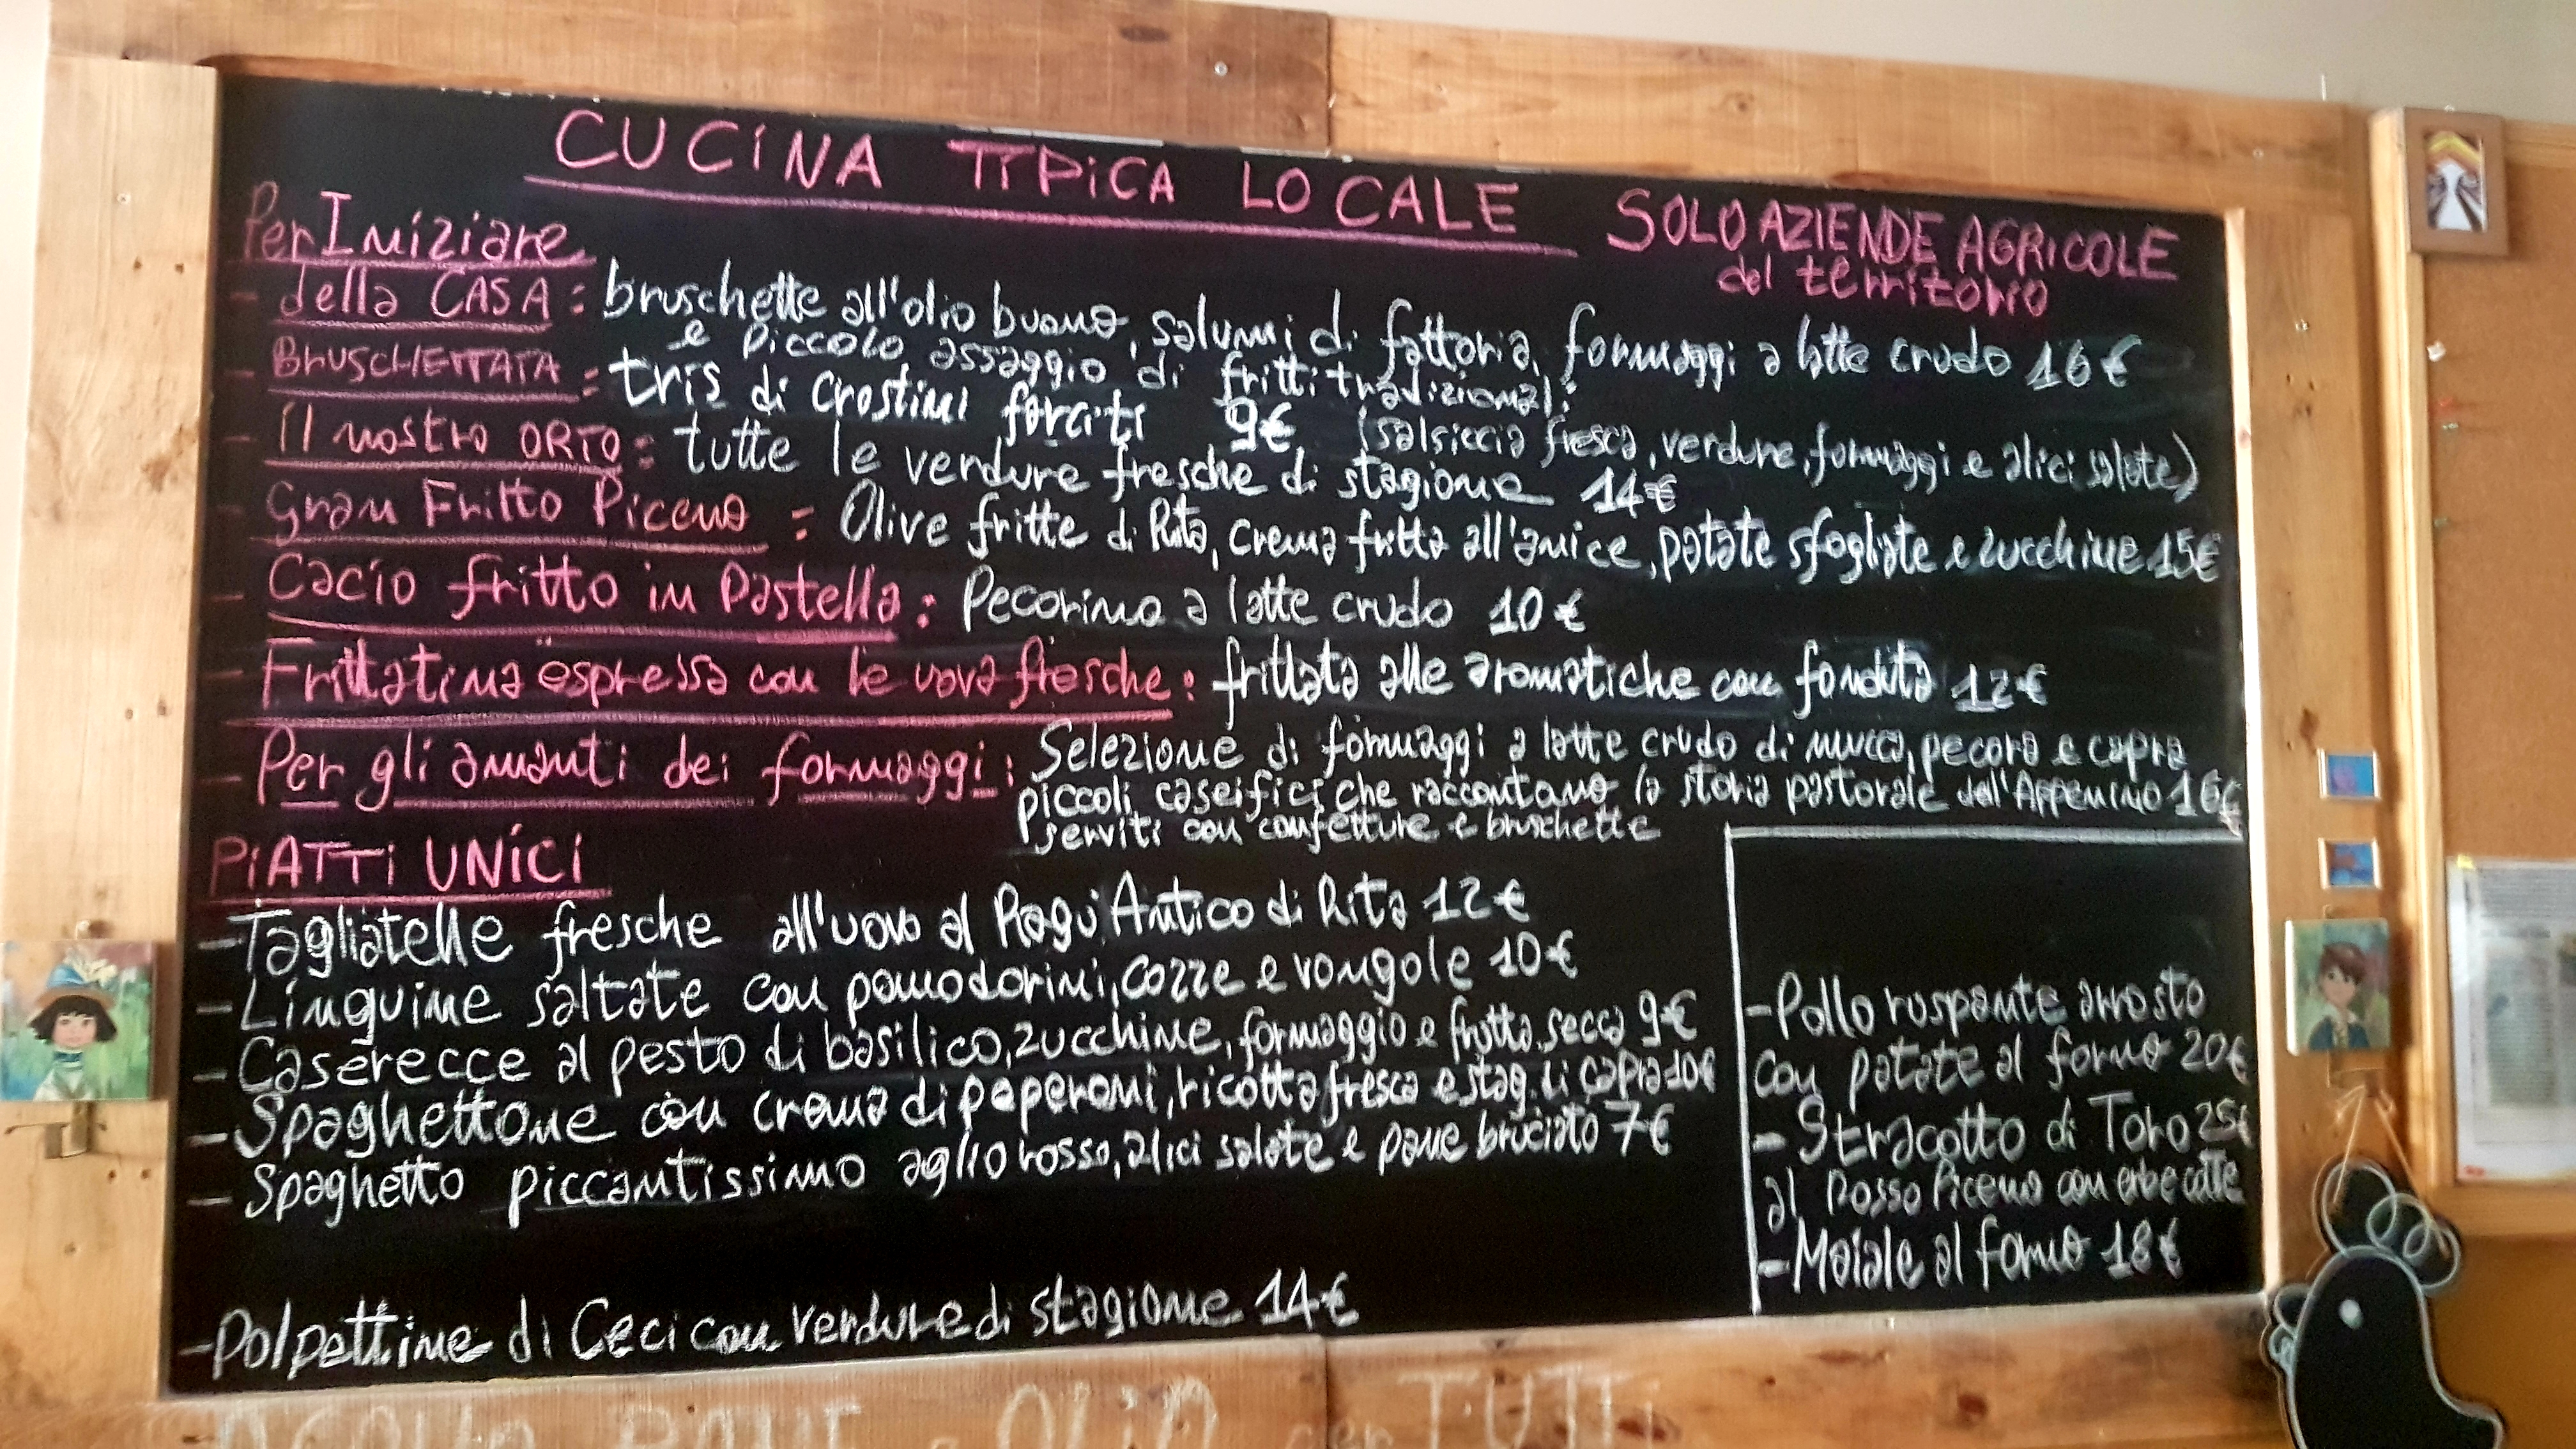 CUCINA TIPICA LOCALE
SOLO AZIENDE AGRICOLE
del territorio
Per Iniziare
- della CASA : bruschette all'olio buono, salumi di fattoria, formaggi a latte crudo 16€
e piccolo assaggio di fritti tradizionali
- BRUSCHETTATA : tris di crostini farciti 9€ (salsiccia fresca, verdure, formaggi e alici salate)
- il nostro ORTO : tutte le verdure fresche di stagione 14€
- Gran Fritto Piceno : Olive fritte di Rita, crema fritta all'anice, patate sfogliate e zucchine 15€
- Cacio fritto in Pastella : Pecorino a latte crudo 10€
- Frittatina espressa con le uova fresche : frittata alle aromatiche con fonduta 12€
- Per gli amanti dei formaggi : Selezione di formaggi a latte crudo di mucca, pecora e capra
piccoli caseifici che raccontano la storia pastorale dell'Appennino 16€
serviti con confetture e bruschette
PIATTI UNICI
- Tagliatelle fresche all'uovo al Ragù Antico di Rita 12€
- Linguine saltate con pomodorini, cozze e vongole 10€
- Caserecce al pesto di basilico, zucchine, formaggio e frutta secca 9€
- Spaghettone con crema di peperoni, ricotta fresca e stag. di capra 10€
- Spaghetto piccantissimo aglio rosso, alici salate e pane bruciato 7€
- Polpettine di Ceci con verdure di stagione 14€
- Pollo ruspante arrosto
con patate al forno 20€
- Stracotto di Toro 25€
al Rosso Piceno con erbe cotte
- Maiale al forno 18€